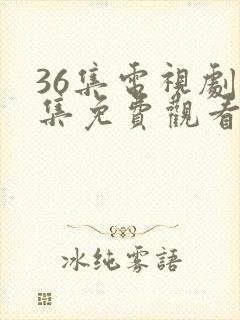 36集電視劇
集免費觀看
冰纯雾語